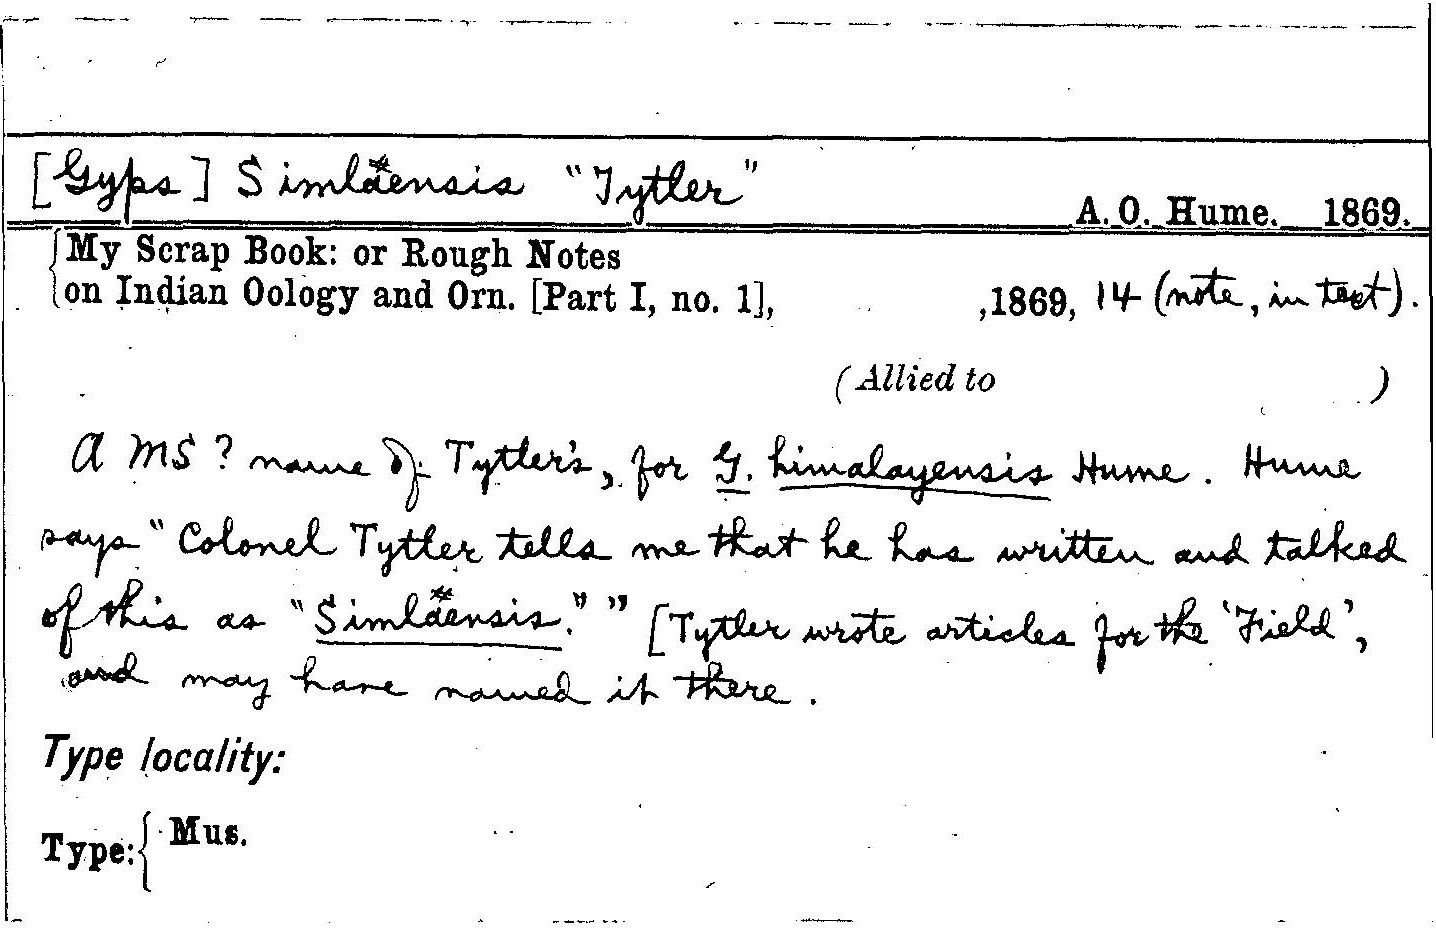 [Gyps] Simläensis "Tytler"
A. O. Hume. 1869.
My Scrap Book: or Rough Notes
on Indian Oology and Orn. [Part I, no. 1], ,1869, 14 (note, in text).
(Allied to )
A MS? name of Tytler's, for G. himalayensis Hume. Hume
says "Colonel Tytler tells me that he has written and talked
of this as "Simläensis."" [Tytler wrote articles for the 'Field',
and may have named it there.
Type locality:
Type: { Mus.